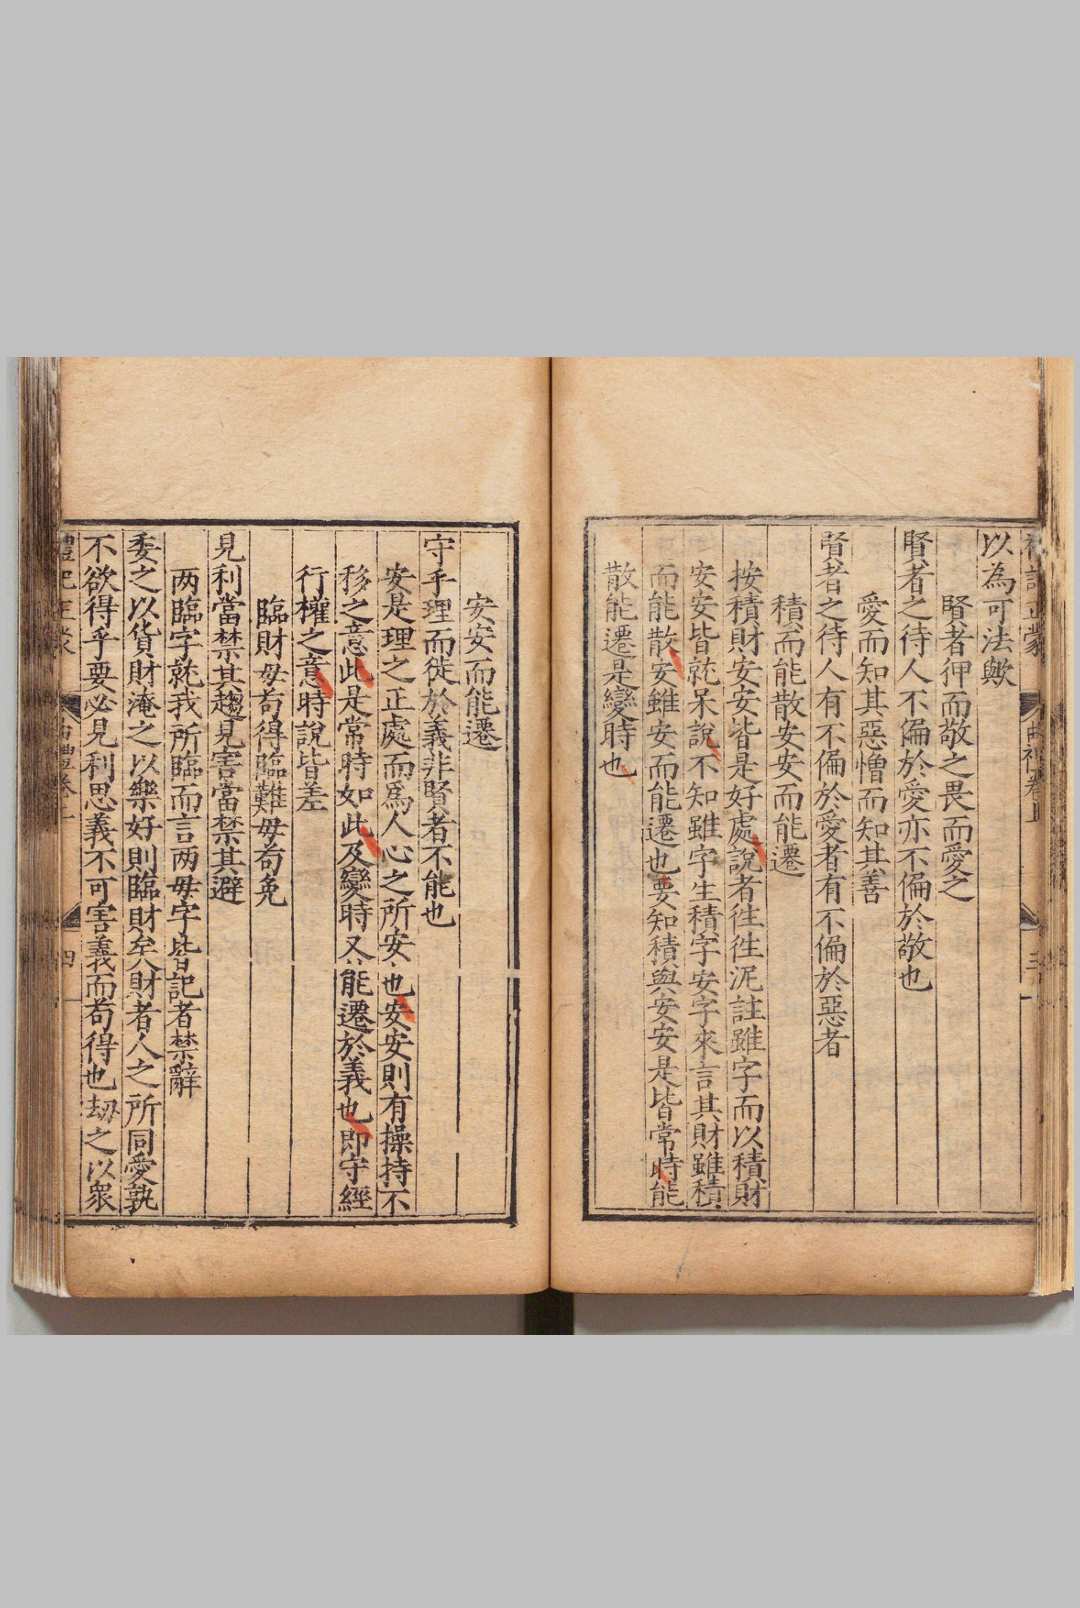 以為可法歟
賢者狎而敬之畏而愛之
賢者之待人不偏於愛亦不偏於敬也
愛而知其惡憎而知其善
賢者之待人有不偏於愛者有不偏於惡者
積而能散安安而能遷
按積財安安皆是好處說者徃徃泥註雖字而以積財
安安皆就呆說不知雖字生積字安字來言其財雖積
而能散安雖安而能遷也要知積與安安是皆常時能
散能遷是變時也
安安而能遷
守乎理而徙於義非賢者不能也
安是理之正處而爲人心之所安也安安則有操持不
移之意此是常時如此及變時又能遷於義也即守經
行權之意時說皆差
臨財毋苟得臨難毋苟免
見利當禁其趨見害當禁其避
两臨字就我所臨而言两毋字皆記者禁辭
委之以貨財淹之以樂好則臨財矣財者人之所同愛孰
不欲得乎要必見利思義不可害義而苟得也刼之以衆